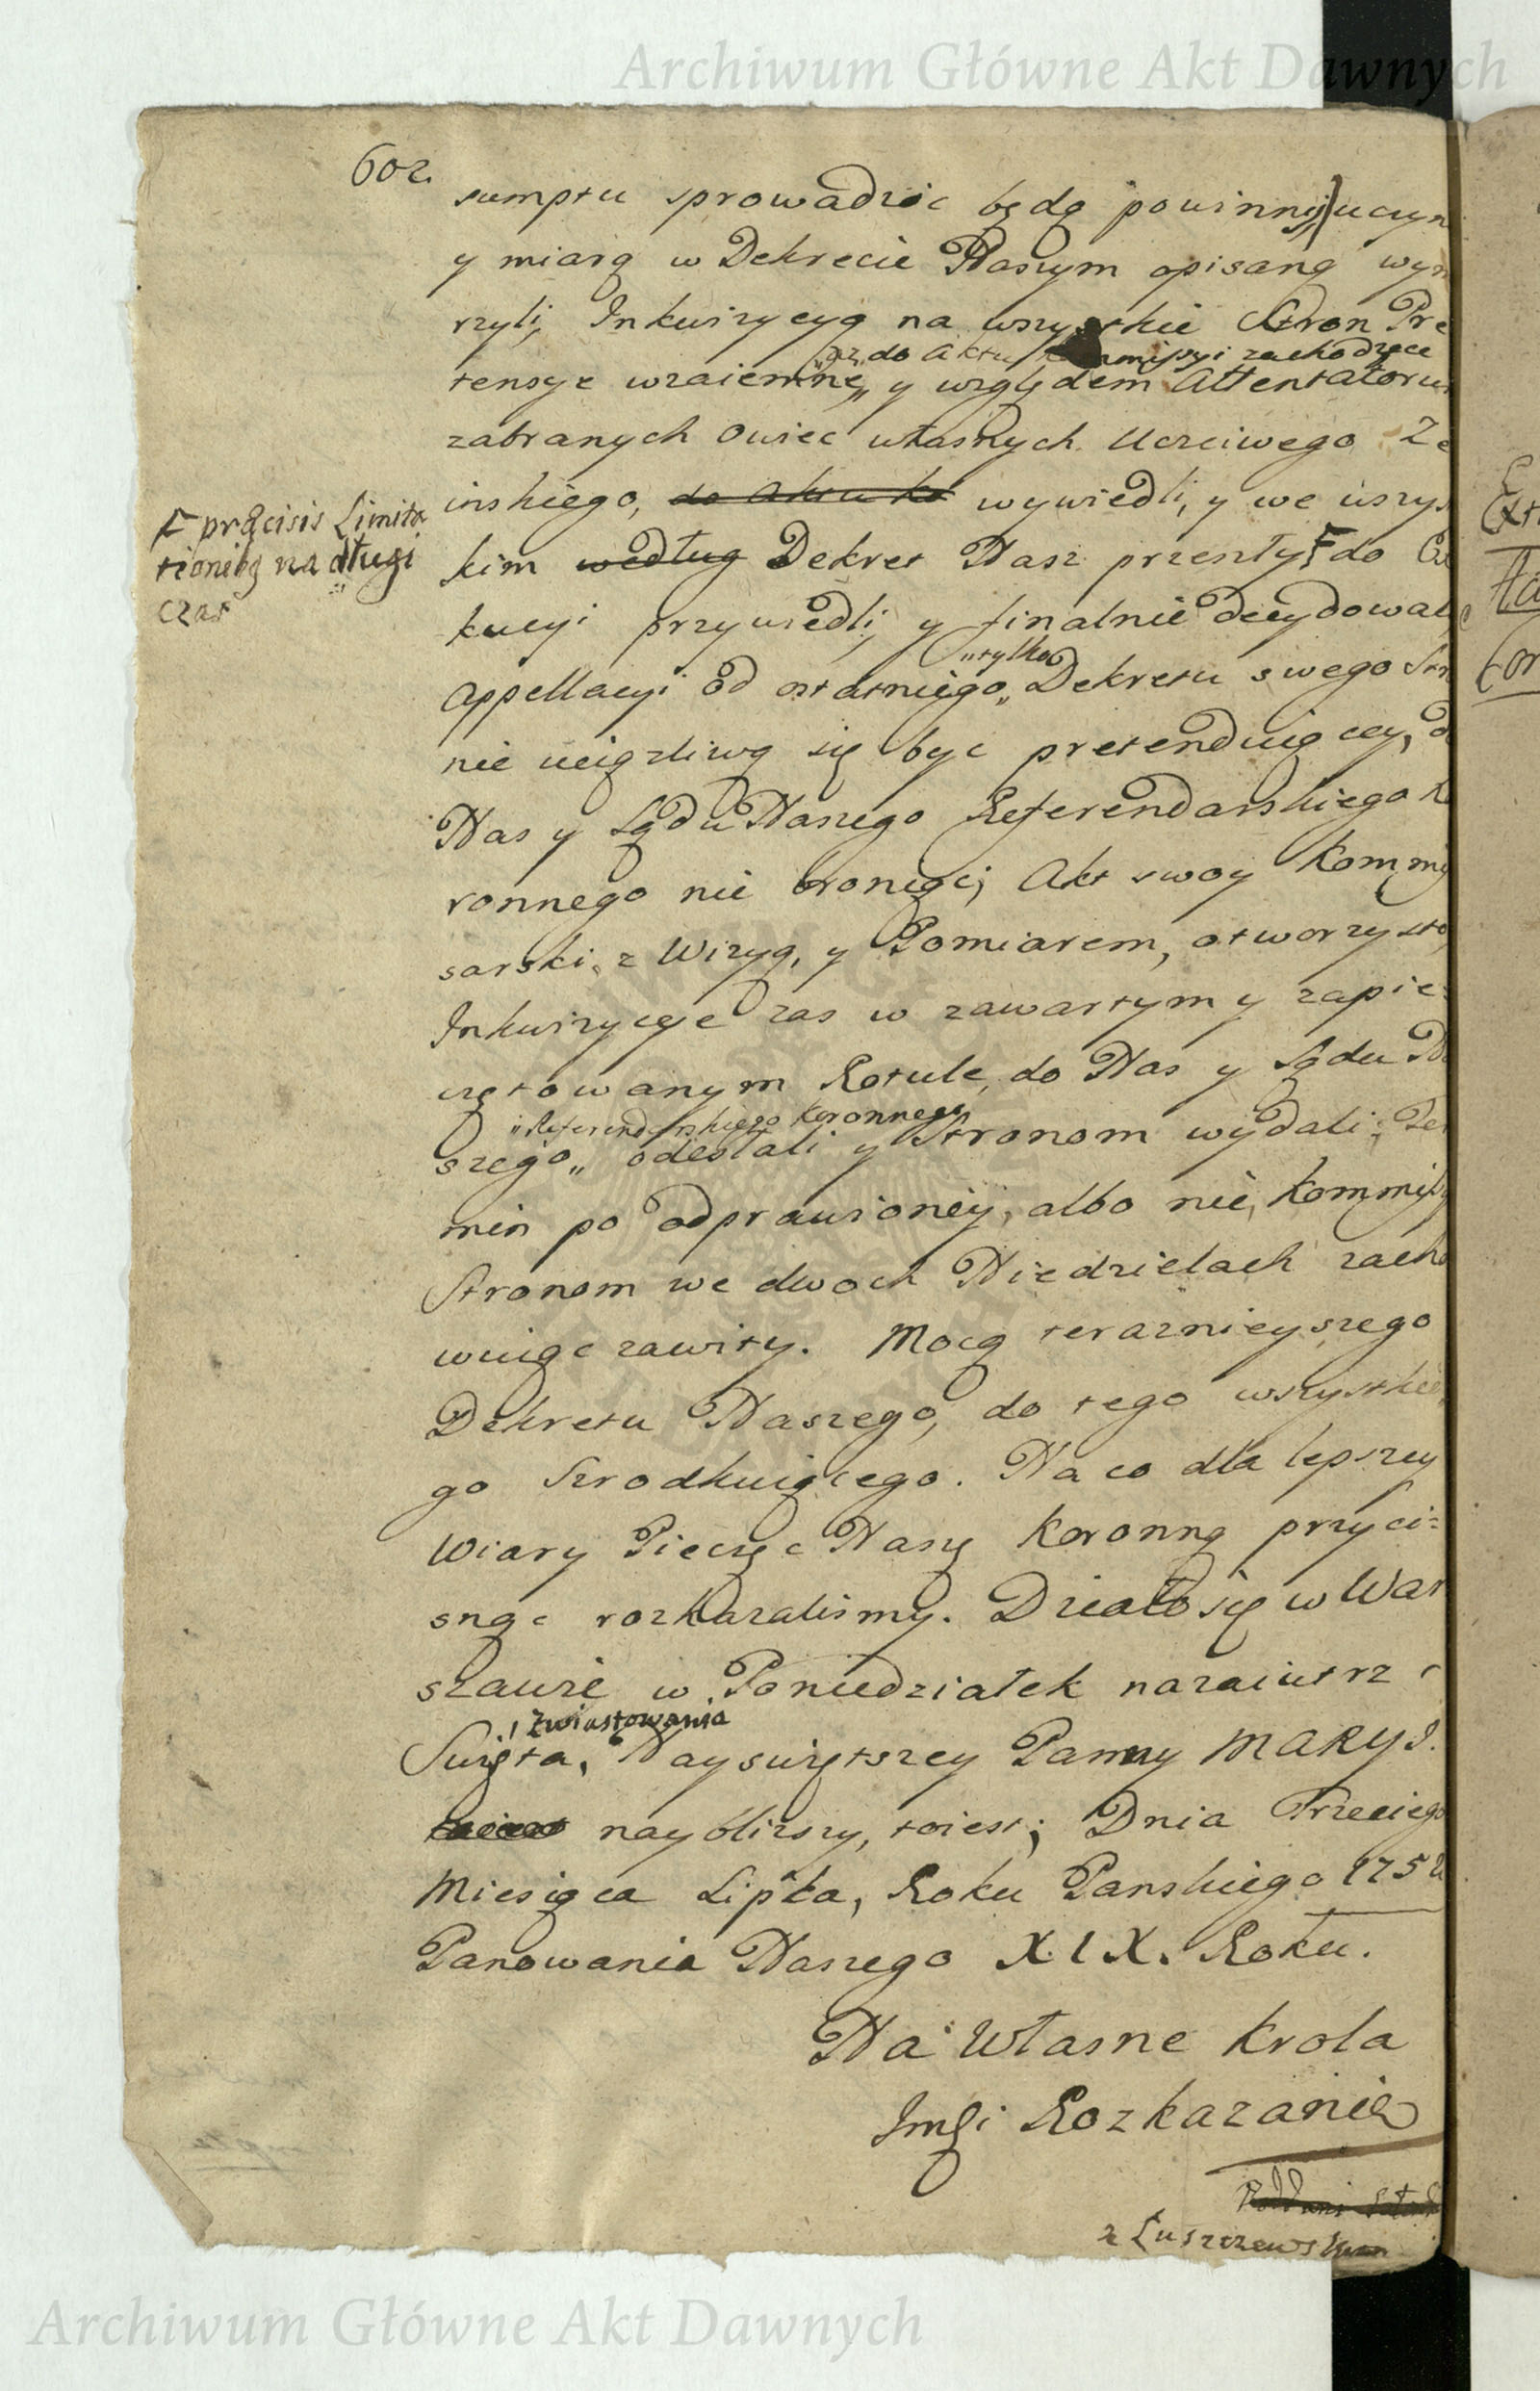 Archiwum Główne Akt Dawnych
602.
sumptu sprowadzic będą powinni) uczyn
y miarą w Dekrecie Naszym opisaną wym
rzyli, Inkwizycyą na wszystkie Stron Pre
"az do Aktu Kommissyi zachodzące
tensye wzaiemne,, y względem Attentatorum
zabranych Owiec własnych Uczciwego Ze
inskiego, do Aktu wywiedli, y we wszys
F præcisis Limita
tionibg na długi
czas
kim według Dekret Nasz przeszły F do Exe
kucyi przywiedli, y finalnie decydowali
"tylko
Appellacyi od ostatniego,, Dekretu swego Stro
nie uciązliwą się byc pretenduiącey, do
Nas y Sądu Naszego Referendarskiego Ko
ronnego nie broniąc; Akt swoy Kommis
sarski, z Wizyą, y Pomiarem, otworzysto,
Inkwizycye zas w zawartym y zapie:
czętowanym Rotule, do Nas y Sądu Na
"Referendarskiego Koronnego
szego,, odesłali y Stronom wydali; Ter
min po odprawioney, albo nie, Kommissyi
Stronom we dwoch Niedzielach zacho
wuiąc zawity. Mocą terazniejszego
Dekretu Naszego, do tego wszystkie
go Szrodkuiącego. Na co dla lepszey
Wiary Pieczęc Naszą Koronną przyci:
snąc rozkazalismy. Działo się w War
szawie w Poniedziałek nazaiutrz
Zwiastowania
Swięta, Nayswiętszey Panny MARYI.
nayblizszy, toiest; Dnia Trzeciego
Miesiąca Lipca, Roku Panskiego 1752
Panowania Naszego XIX. Roku.
Na Własne Krola
Jmsci Rozkazanie
z Łuszczewskim
Archiwum Główne Akt Dawnych